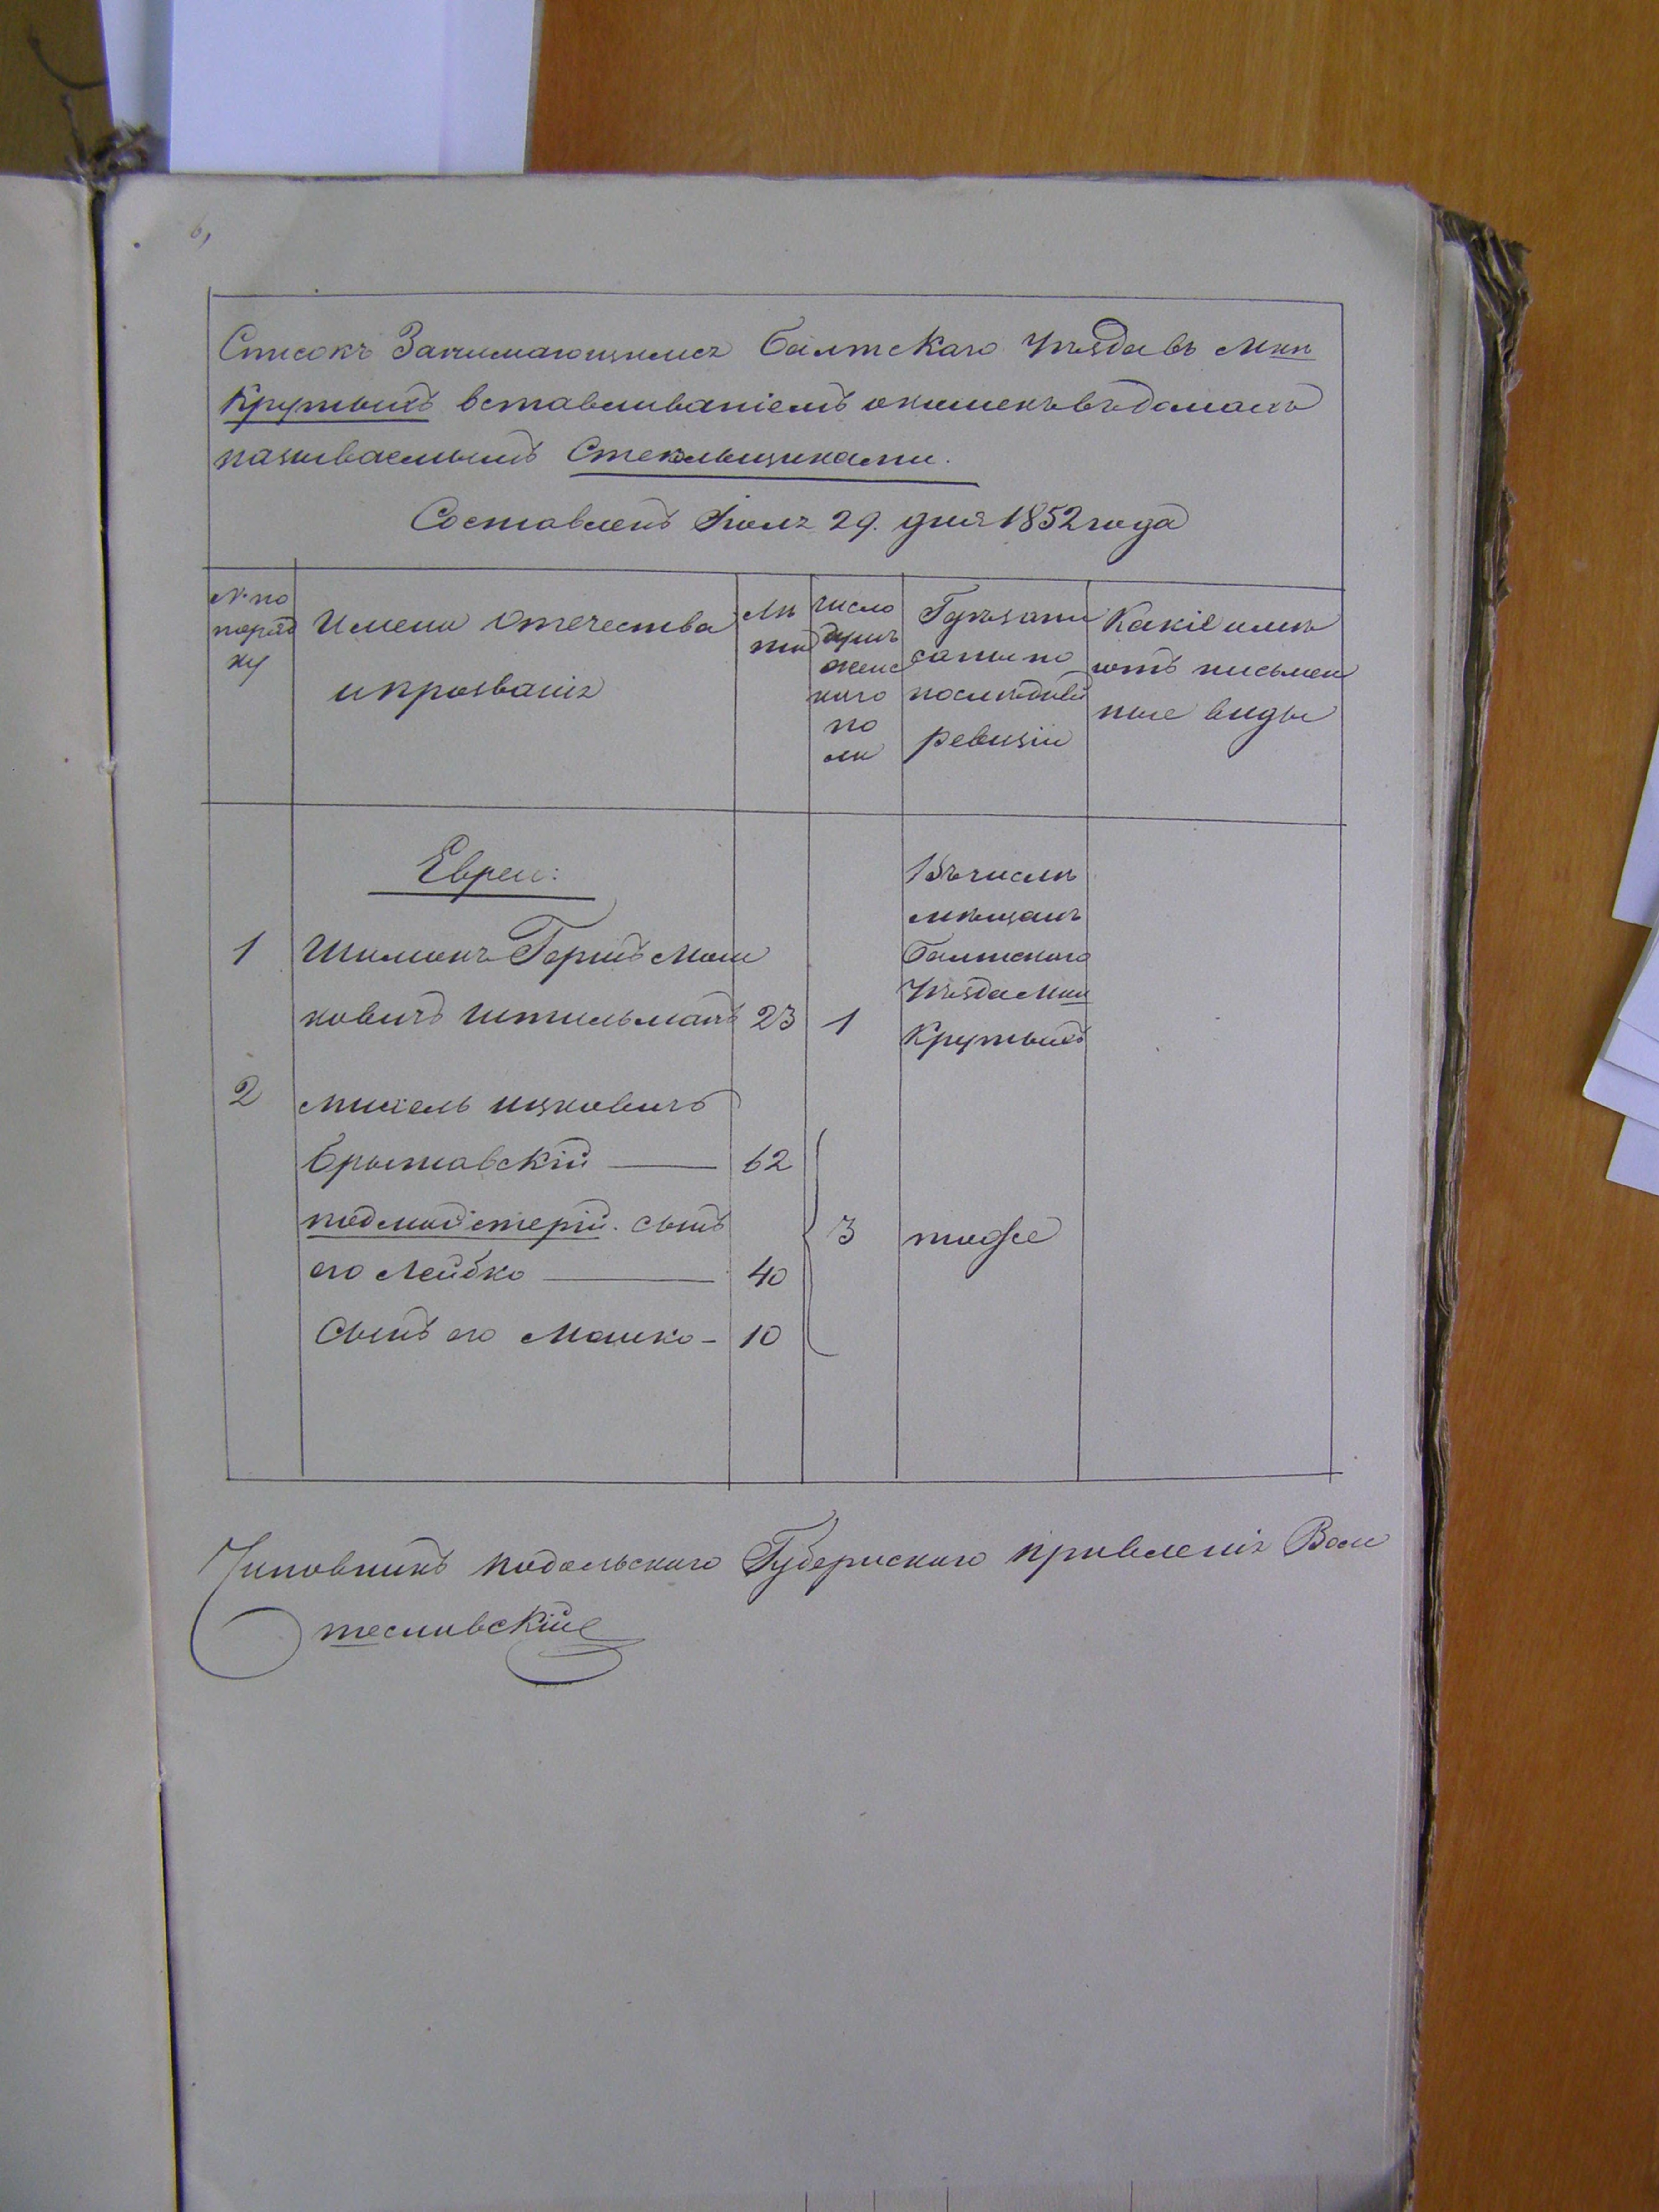 Списокъ Занимающимся Балтскаго Уѣзда въ Мкѣ
Крутыхъ вставливаніемъ окошекъ въ домахъ
называемымъ Стекольщиками.
Составленъ Іюля 29. дня 1852 года
№ по порядку
Имена Отечества и прозванія
Лѣта
Число душъ женскаго пола
Гдѣ записаны по послѣдней ревизіи
Какіе имѣютъ письменные виды
Евреи:
1 Шимонъ Гершъ Мош
ковичъ Штильманъ 23 1
Въ числѣ
мѣщанъ
Балтскаго
Уѣзда Мки
Крутыхъ
2 Михель Ицковичъ
Брытавскій 62
подмайстерій. сынъ 3 тоже
его Лейбко 40
Сынъ его Мошко - 10
Чиновникъ Подольскаго Губернскаго Правленія